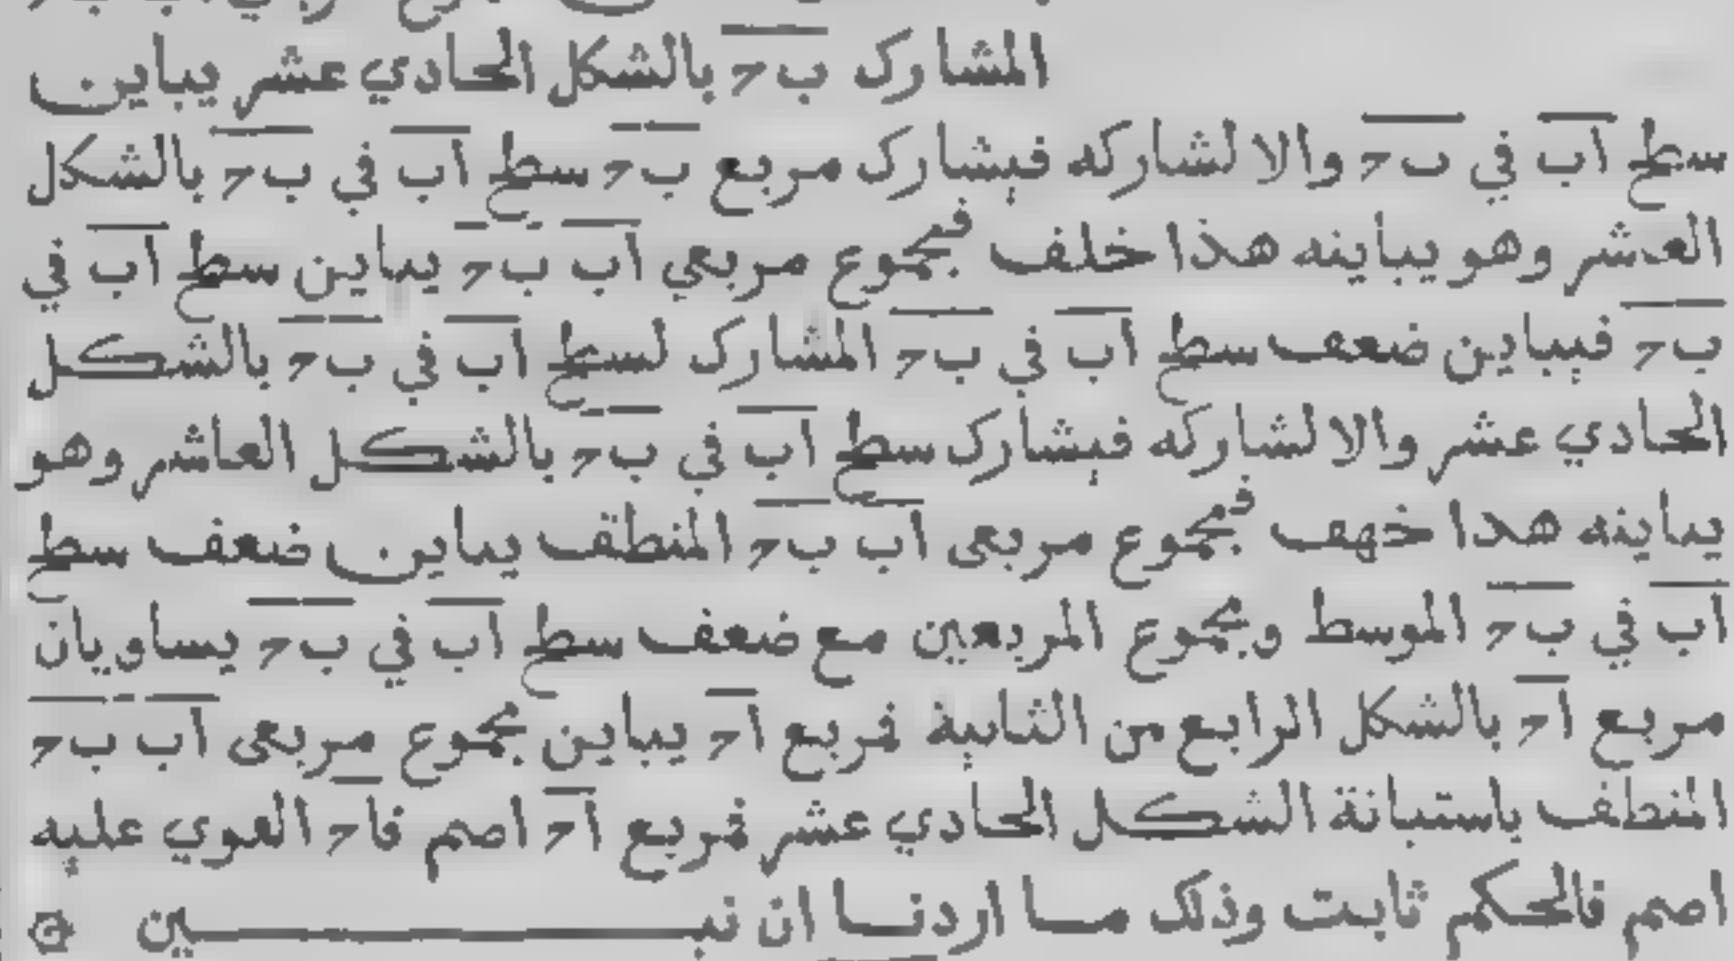 المشارك ب ح بالشكل الحادي عشر يباين
سطح اب في ب ح والا لشاركه فيشارك مربع ب ح سطح اب في ب ح بالشكل
العاشر وهو يباينه هذا خلف فمجموع مربعي اب ب ح يباين سطح اب في
ب ح فيباين ضعف سطح اب في ب ح المشارك لسطح اب في ب ح بالشكل
الحادي عشر والا لشاركه فيشارك سطح اب في ب ح بالشكل العاشر وهو
يباينه هذا خهف فمجموع مربعي اب ب ح المنطق يباين ضعف سطح
اب في ب ح الموسط ومجموع المربعين مع ضعف سطح اب في ب ح يساويان
مربع ا ح بالشكل الرابع من الثانية فمربع ا ح يباين مجموع مربعي اب ب ح
المنطق باستبانة الشكل الحادي عشر فمربع ا ح اصم فا ح القوي عليه
اصم فالحكم ثابت وذلك ما اردنا ان نبين